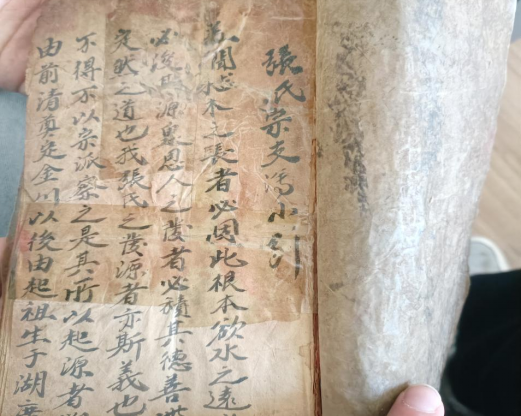 張氏宗支譜小引
蓋聞思木之長者必固此根本欲水之遠
必浚其源裏思人之茂者必積其德善世
定然之道也我張氏之發源者亦斯義也
不得不以宗派察之是其所以起源者
由前清奠定金川以後由起祖生于湖